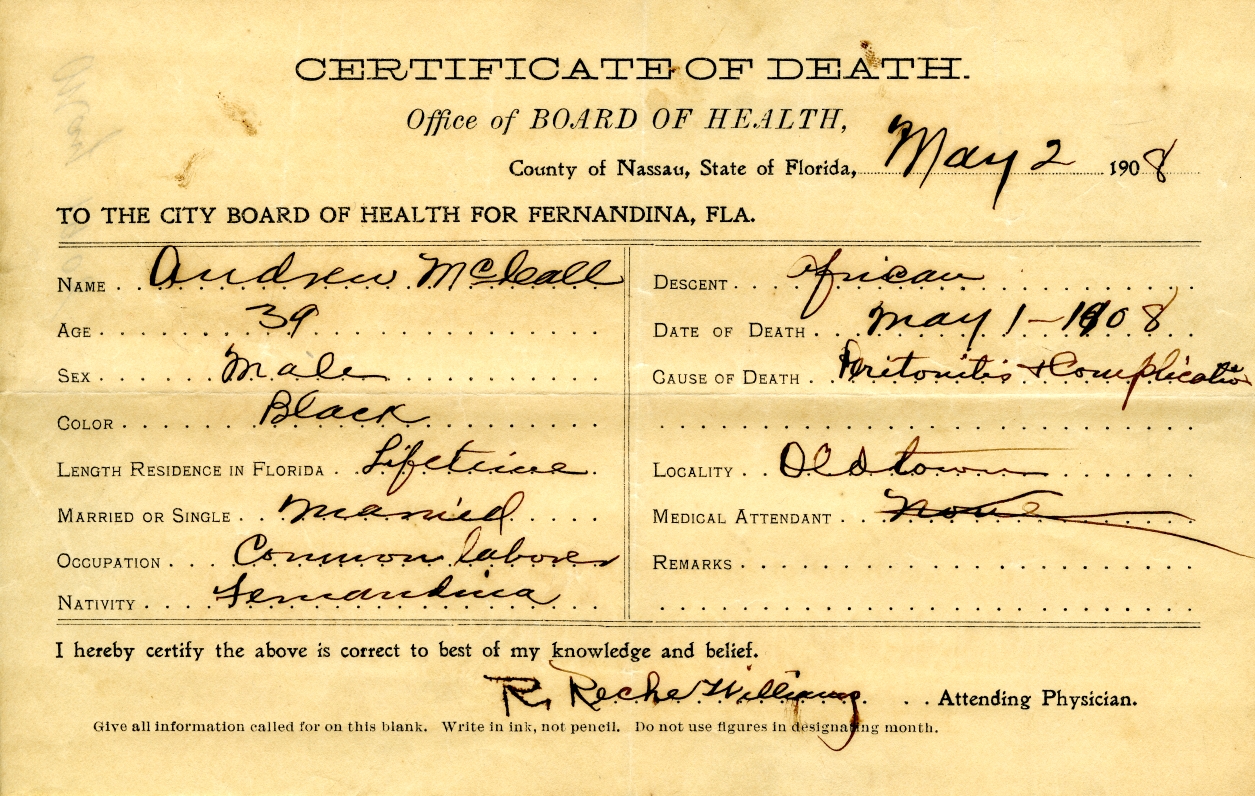 CERTIFICATE OF DEATH.
Office of BOARD OF HEALTH,
County of Nassau, State of Florida, May 2 1908
TO THE CITY BOARD OF HEALTH FOR FERNANDINA, FLA.
NAME Andrew
AGE 39
SEX Male
COLOR Black
LENGTH RESIDENCE IN FLORIDA Lifetime
MARRIED OR SINGLE Married
OCCUPATION Common laborer
NATIVITY Fernandina
DESCENT African
DATE OF DEATH May 1-1908
CAUSE OF DEATH Peritonitis & Complication
LOCALITY Oldtown
MEDICAL ATTENDANT None
REMARKS
I hereby certify the above is correct to best of my knowledge and belief.
R. Williams Attending Physician.
Give all information called for on this blank. Write in ink, not pencil. Do not use figures in designating month.